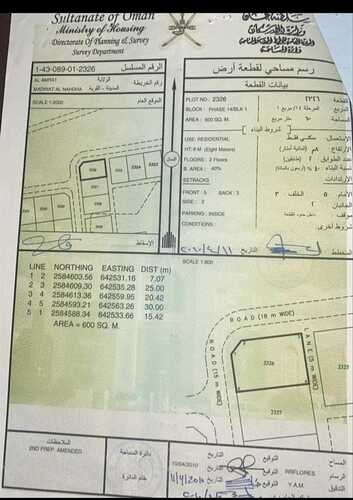 Sultanate of Oman
Ministry of Housing
Directorate Of Planning & Survey
Survey Department
سلطنة عمان
وزارة الإسكان
1-43-089-01-2326
الرقم المسلسل
رسم مساحي لقطعة أرض
AL AMRAT
الولاية
MADINAT AL NAHDHA
المدينة - القرية
رقم الخريطة
SCALE 1:2000
الموقع العام
بيانات القطعة
PLOT NO: 2326
القطعة
BLOCK : PHASE 14/BLK 1
المرحلة ١٤ / مربع ١
AREA : 600 SQ. M.
٦٠٠ متر مربع
شروط البناء
USE: RESIDENTIAL
سكني فقط
الإستعمال
HT: 8 M (Eight Meters)
(ثمانية أمتار)
الإرتفاع
FLOORS : 2 Floors
(طابقين)
عدد الطوابق
B. AREA: 40%
نسبة البناء
SETBACKS
الإرتدادات
FRONT : 5 BACK : 3
الأمام ٥ الخلف ٣
SIDE : 2
الجانبان ٢
PARKING : INSIDE
داخل حدود القطعة
موقف
CONDITIONS:
شروط أخرى
الإسقاط
التاريخ
المخطط
LINE NORTHING EASTING DIST (m)
1 2 2584603.56 642531.16 7.07
2 3 2584609.30 642535.28 25.00
3 4 2584613.36 642559.95 20.42
4 5 2584593.21 642563.26 30.00
5 1 2584588.34 642533.66 15.42
AREA = 600 SQ. M.
SCALE 1:800
ROAD (18 m WIDE)
ROAD (15 m WIDE)
LANE (5 m WIDE)
2326
2327
الملاحظات
2ND PREP. AMENDED
دائرة المساحة
ختم الدائرة
التاريخ
التوقيع
المساح
NRFLORES
التاريخ
التوقيع
الرسام
Y.A.M.
التاريخ
التوقيع
التدقيق